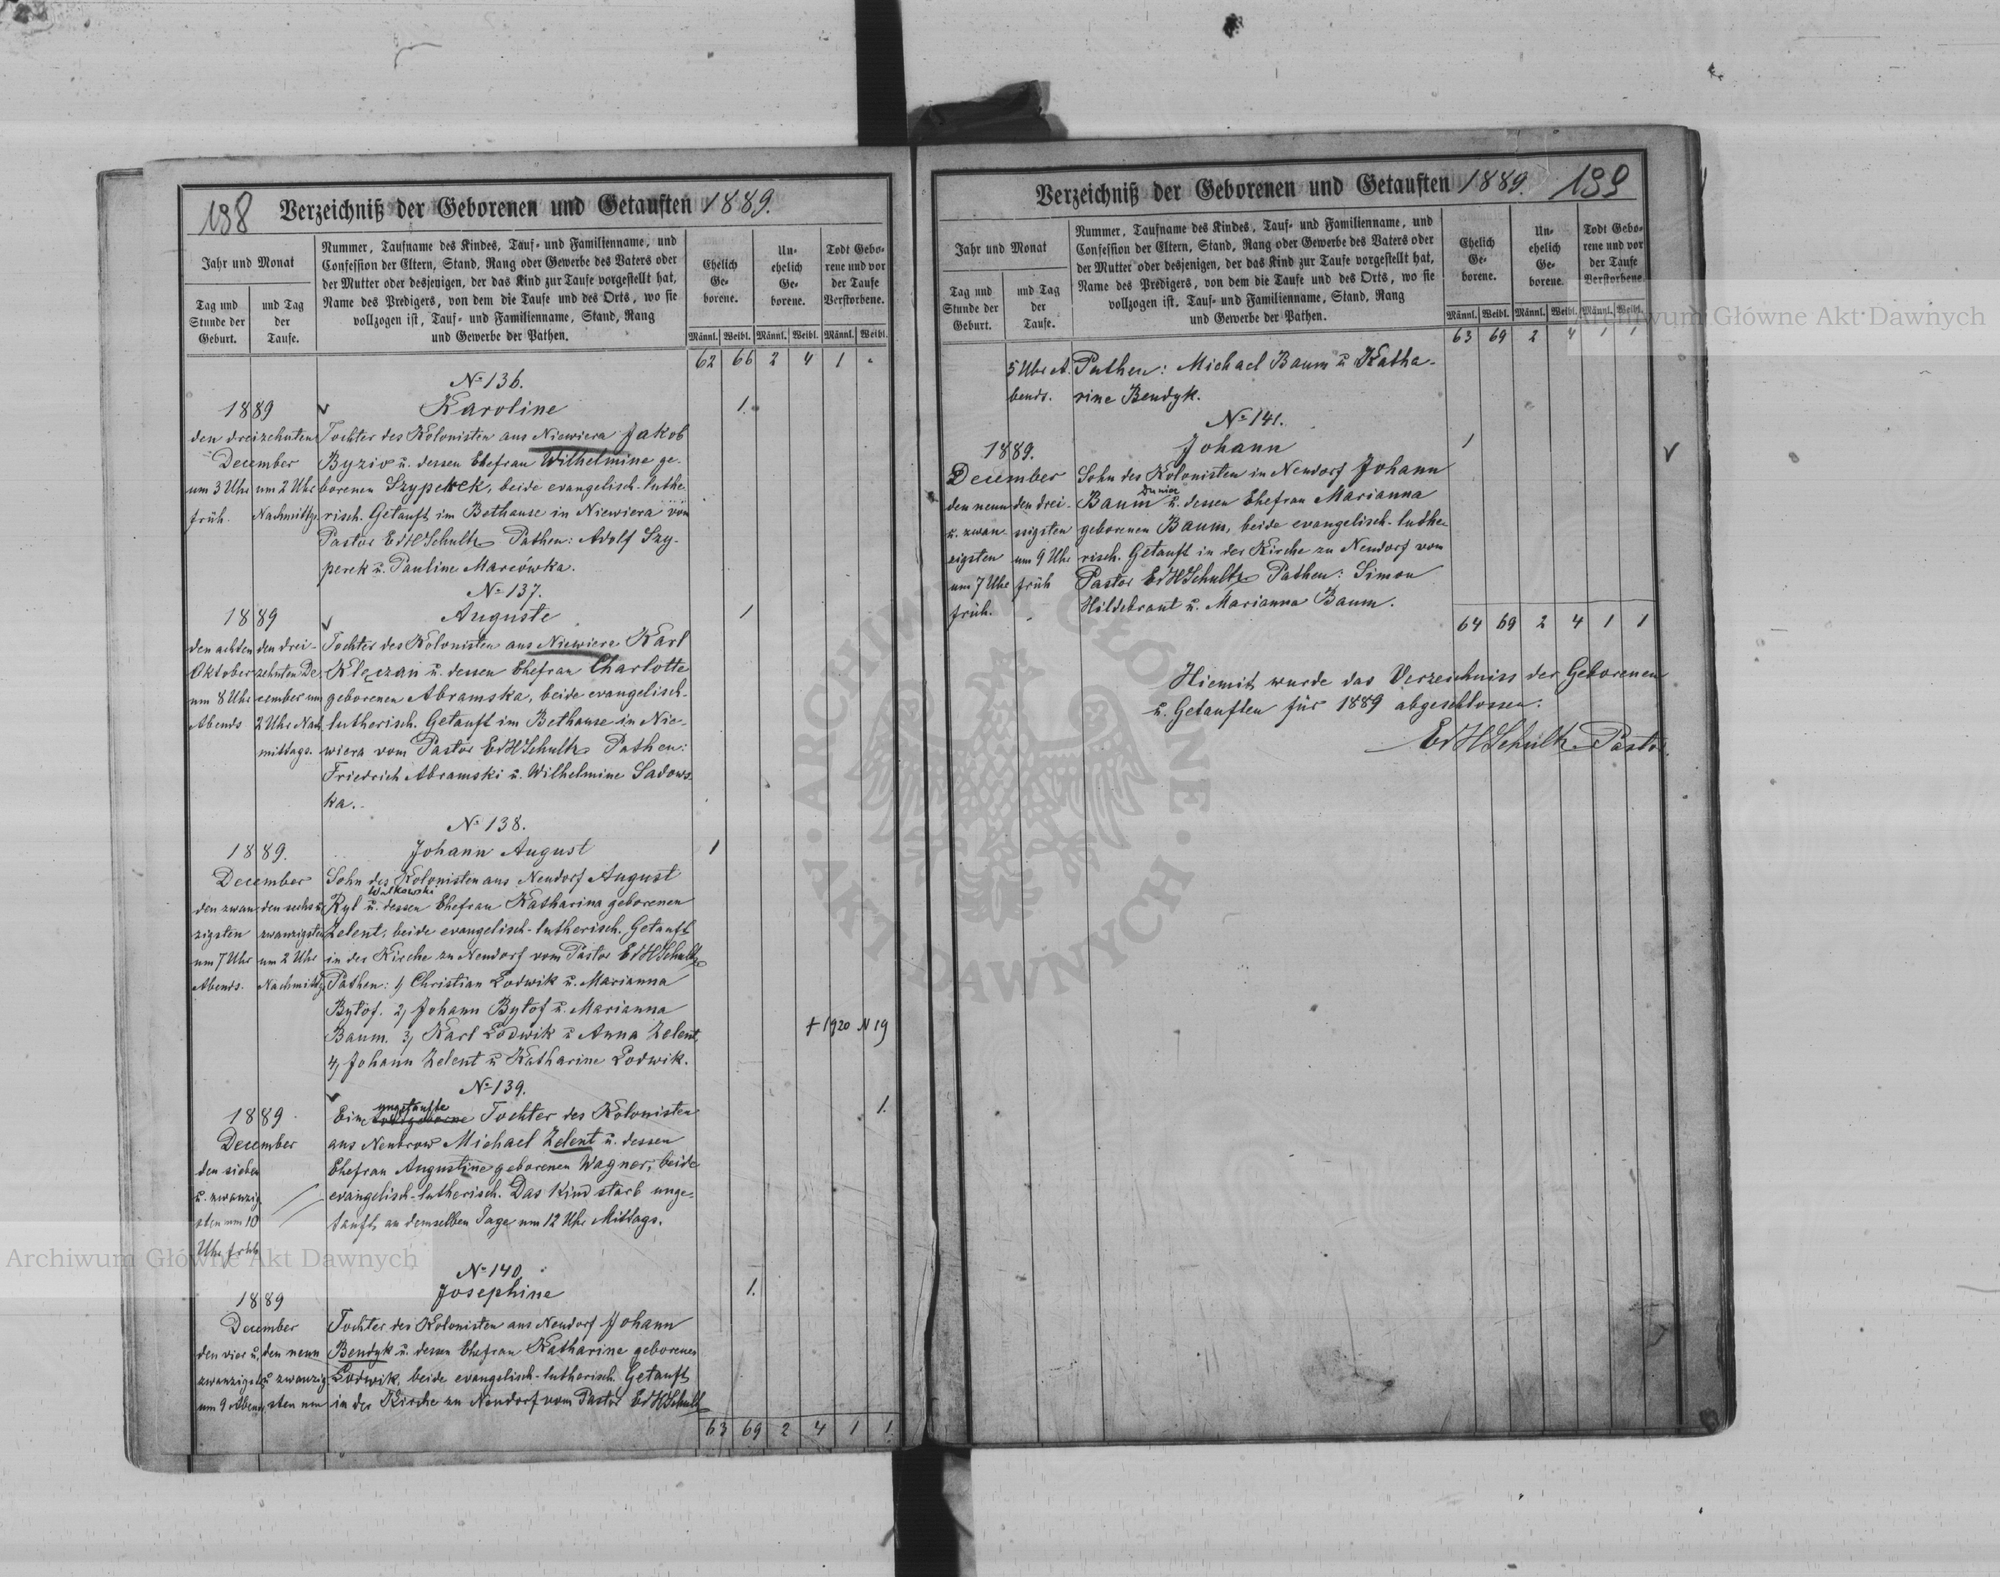 198 Verzeichniß der Geborenen und Getauften 1889.
Jahr und Monat
Tag und Stunde der Geburt.
und Tag der Taufe.
Nummer, Taufname des Kindes, Tauf- und Familienname, und
Confession der Eltern, Stand, Rang oder Gewerbe des Vaters oder
der Mutter oder desjenigen, der das Kind zur Taufe vorgestellt hat,
Name des Predigers, von dem die Taufe und des Orts, wo sie
vollzogen ist, Tauf- und Familienname, Stand, Rang
und Gewerbe der Pathen.
Ehelich Geborene.
Unehelich Geborene.
Todt Geborene und vor der Taufe Verstorbene.
Männl. Weibl. Männl. Weibl. Männl. Weibl.
62 66 2 4 1 "
№ 136.
1889
Karoline
1.
den dreizehnten
December
um 3 Uhr
früh.
um 2 Uhr
Nachmittg.
Tochter des Kolonisten aus Niewiera Jakob
Byzio u. dessen Ehefrau Wilhelmine ge-
borenen Szyperek, beide evangelisch-luthe-
risch. Getauft im Bethause in Niewiera von
Pastor EdHSchultz Pathen: Adolf Szy-
perek u. Pauline Marcówka.
№ 137.
1889
Auguste
1
den achten
Oktober
um 8 Uhr
Abends
den drei-
zehnten De-
cember um
2 Uhr Nach-
mittags.
Tochter des Kolonisten aus Niewiera Karl
Kleczan u. dessen Ehefrau Charlotte
geborenen Abramska, beide evangelisch-
lutherisch. Getauft im Bethause in Nie-
wiera vom Pastor EdHSchultz Pathen:
Friedrich Abramski u. Wilhelmine Sadows-
ka.
№ 138.
1889.
Johann August
1
December
den zwan-
zigsten
um 7 Uhr
Abends.
den sechs u
zwanzigsten
um 2 Uhr
Nachmittg.
Sohn des Kolonisten aus Neudorf August
Walkowski
Ryl u. dessen Ehefrau Katharina geborenen
Zelent, beide evangelisch-lutherisch. Getauft
in der Kirche zu Neudorf vom Pastor EdHSchultz
Pathen: 1) Christian Lodwik u. Marianna
Bytof. 2) Johann Bytof u. Marianna
Baum. 3) Karl Lodwik u Anna Zelent,
4) Johann Zelent u Katharine Lodwik.
† 1920 N 19
№ 139.
1889
December
den sieben
u. zwanzig
sten um 10
Uhr früh
ungetaufte
Eine todtgeborne Tochter des Kolonisten
aus Neubrow Michael Zelent u. dessen
Ehefrau Augustine geborenen Wagner, beide
evangelisch-lutherisch. Das Kind starb unge-
tauft an demselben Tage um 12 Uhr Mittags.
1.
№ 140.
1889
Josephine
1.
December
den vier u.
zwanzigst.
um 9 Abend
den neun
u zwanzig
sten um
Tochter des Kolonisten aus Neudorf Johann
Bendyk u. dessen Ehefrau Katharine geborenen
Lodwik, beide evangelisch-lutherisch. Getauft
in der Kirche zu Neudorf vom Pastor EdHSchultz
63 69 2 4 1 1.
Verzeichniß der Geborenen und Getauften 1889. 199
Jahr und Monat
Tag und Stunde der Geburt.
und Tag der Taufe.
Nummer, Taufname des Kindes, Tauf- und Familienname, und
Confession der Eltern, Stand, Rang oder Gewerbe des Vaters oder
der Mutter oder desjenigen, der das Kind zur Taufe vorgestellt hat,
Name des Predigers, von dem die Taufe und des Orts, wo sie
vollzogen ist, Tauf- und Familienname, Stand, Rang
und Gewerbe der Pathen.
Ehelich Geborene.
Unehelich Geborene.
Todt Geborene und vor der Taufe Verstorbene.
Männl. Weibl. Männl. Weibl. Männl. Weibl.
63 69 2 4 1 1
5 Uhr A-
bends.
Pathen: Michael Baum u Katha-
rine Bendyk.
№ 141.
1889.
Johann
1
December
den neun
u. zwan-
zigsten
um 7 Uhr
früh.
den drei-
ssigsten
um 9 Uhr
früh
Sohn des Kolonisten in Neudorf Johann
Baum u. dessen Ehefrau Marianna
geborenen Baum, beide evangelisch-luthe-
risch. Getauft in der Kirche zu Neudorf von
Pastor EdHSchultz Pathen: Simon
Hildebrant u. Marianna Baum.
64 69 2 4 1 1
Hiemit wurde das Verzeichniss der Geborenen
u. Getauften für 1889 abgeschlossen.
EdHSchultz Pastor.
Archiwum Główne Akt Dawnych
Archiwum Główne Akt Dawnych
ARCHIWUM GŁÓWNE AKT DAWNYCH